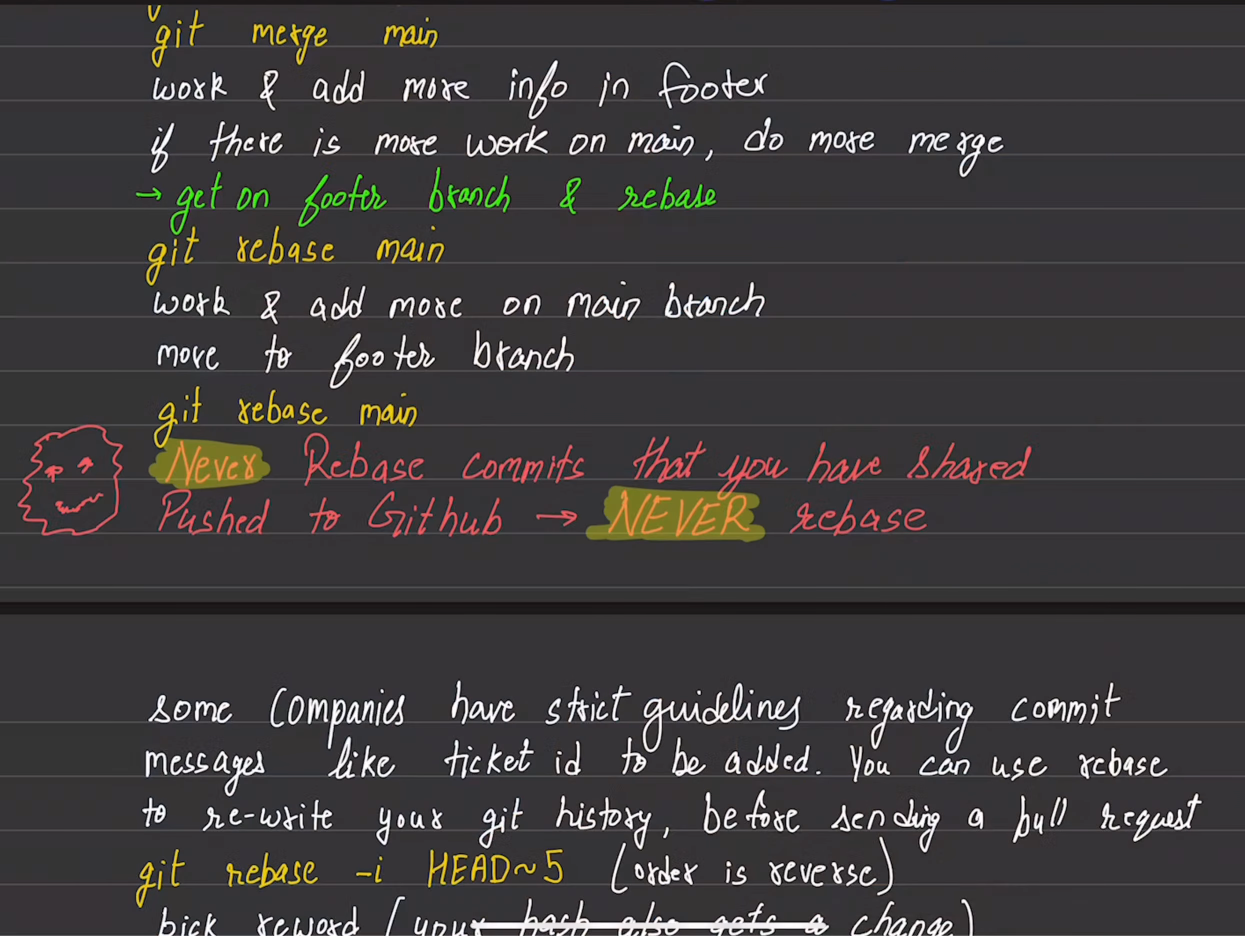 git merge main
work & add more info in footer
if there is more work on main, do more merge
→ get on footer branch & rebase
git rebase main
work & add more on main branch
move to footer branch
git rebase main
Never Rebase commits that you have shared
Pushed to Github → NEVER rebase
some Companies have strict guidelines regarding commit
messages like ticket id to be added. You can use rebase
to re-write your git history, before sending a pull request
git rebase -i HEAD~5 (order is reverse)
pick reword (your hash also gets a change)